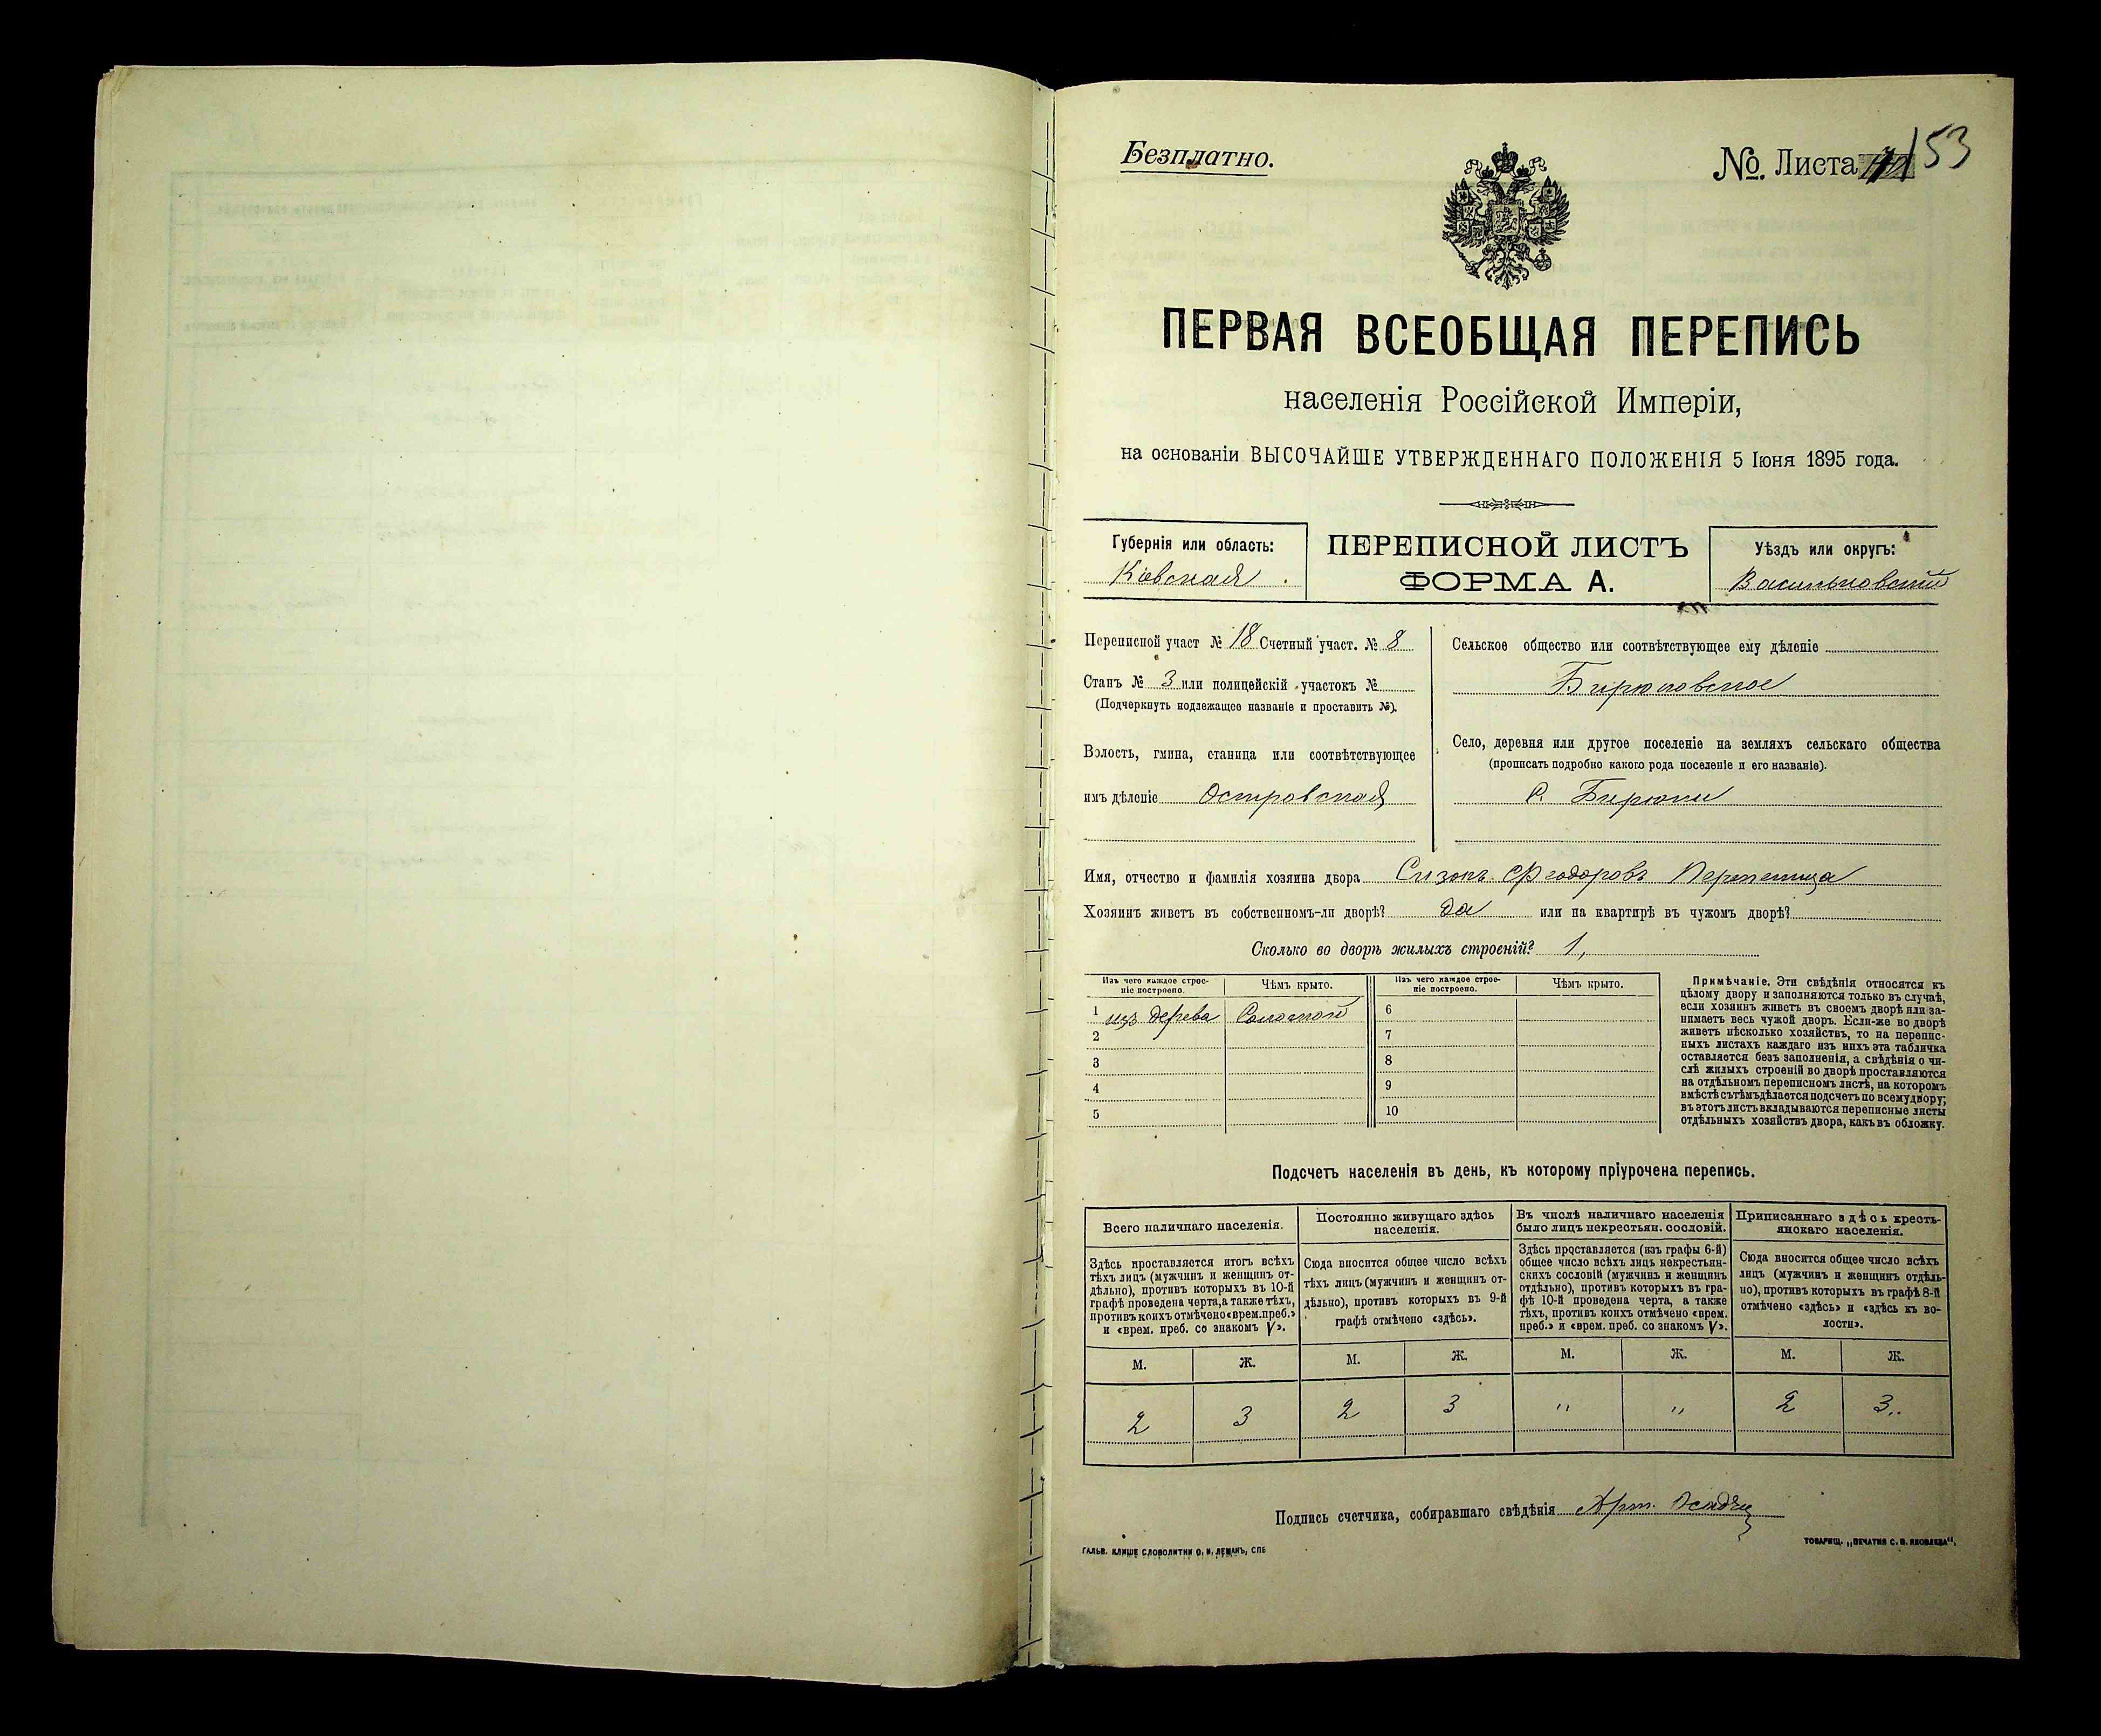 Безплатно.
№. Листа 153
ПЕРВАЯ ВСЕОБЩАЯ ПЕРЕПИСЬ
населенія Россійской Имперіи,
на основаніи ВЫСОЧАЙШЕ УТВЕРЖДЕННАГО ПОЛОЖЕНІЯ 5 Іюня 1895 года.
Губернія или область:
Кіевская
ПЕРЕПИСНОЙ ЛИСТЪ
ФОРМА А.
Уѣздъ или округъ:
Васильковскій
Переписной участ № 18 Счетный участ. № 8
Станъ № 3 или полицейскій участокъ №
(Подчеркнуть подлежащее названіе и проставить №).
Волость, гмина, станица или соотвѣтствующее
имъ дѣленіе Островская
Сельское общество или соотвѣтствующее ему дѣленіе
Бирюковское
Село, деревня или другое поселеніе на земляхъ сельскаго общества
(прописать подробно какого рода поселеніе и его названіе).
С. Бирюки
Имя, отчество и фамилія хозяина двора Сизонъ Феодоровъ Перепелица
Хозяинъ живетъ въ собственномъ-ли дворѣ? да или на квартирѣ въ чужомъ дворѣ?
Сколько во дворѣ жилыхъ строеній? 1,
Изъ чего каждое строе-
ніе построено.
Чѣмъ крыто.
Изъ чего каждое строе-
ніе построено.
Чѣмъ крыто.
1 изъ дерева Соломой
2
3
4
5
6
7
8
9
10
Примѣчаніе. Эти свѣдѣнія относятся къ
цѣлому двору и заполняются только въ случаѣ,
если хозяинъ живетъ въ своемъ дворѣ или за-
нимаетъ весь чужой дворъ. Если-же во дворѣ
живетъ нѣсколько хозяйствъ, то на перепис-
ныхъ листахъ каждаго изъ нихъ эта табличка
оставляется безъ заполненія, а свѣдѣнія о чи-
слѣ жилыхъ строеній во дворѣ проставляются
на отдѣльномъ переписномъ листѣ, на которомъ
вмѣстѣ съ тѣмъ дѣлается подсчетъ по всему двору;
въ этотъ листъ вкладываются переписные листы
отдѣльныхъ хозяйствъ двора, какъ въ обложку.
Подсчетъ населенія въ день, къ которому пріурочена перепись.
Всего наличнаго населенія.
Здѣсь проставляется итогъ всѣхъ
тѣхъ лицъ (мужчинъ и женщинъ от-
дѣльно), противъ которыхъ въ 10-й
графѣ проведена черта, а также тѣхъ,
противъ коихъ отмѣчено «врем. преб.»
и «врем. преб. со знакомъ V».
Постоянно живущаго здѣсь
населенія.
Сюда вносится общее число всѣхъ
тѣхъ лицъ (мужчинъ и женщинъ от-
дѣльно), противъ которыхъ въ 9-й
графѣ отмѣчено «здѣсь».
Въ числѣ наличнаго населенія
было лицъ некрестьян. сословій.
Здѣсь проставляется (изъ графы 6-й)
общее число всѣхъ лицъ некрестьян-
скихъ сословій (мужчинъ и женщинъ
отдѣльно), противъ которыхъ въ гра-
фѣ 10-й проведена черта, а также
тѣхъ, противъ коихъ отмѣчено «врем.
преб.» и «врем. преб. со знакомъ V».
Приписаннаго здѣсь кресть-
янскаго населенія.
Сюда вносится общее число всѣхъ
лицъ (мужчинъ и женщинъ отдѣль-
но), противъ которыхъ въ графѣ 8-й
отмѣчено «здѣсь» и «здѣсь къ во-
лости».
М. Ж. М. Ж. М. Ж. М. Ж.
2 3 2 3 " " 2 3..
Подпись счетчика, собиравшаго свѣдѣнія Арт.
ГАЛЬВ. КЛИШЕ СЛОВОЛИТНИ О. И. ЛЕМАНЪ, СПБ
ТОВАРИЩ. „ПЕЧАТНЯ С. П. ЯКОВЛЕВА“.